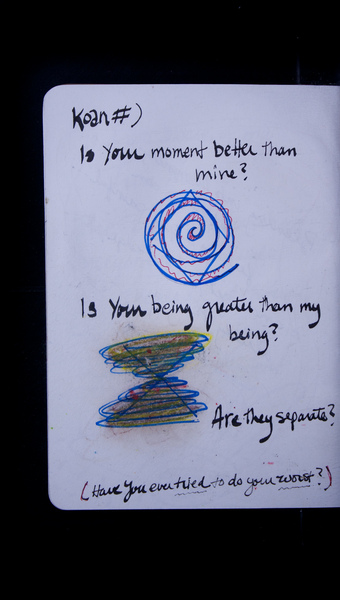 Koan #)
Is Your moment better than
mine?
Is Your being greater than my
being?
Are they separate?
(Have You ever tried to do your worst?)